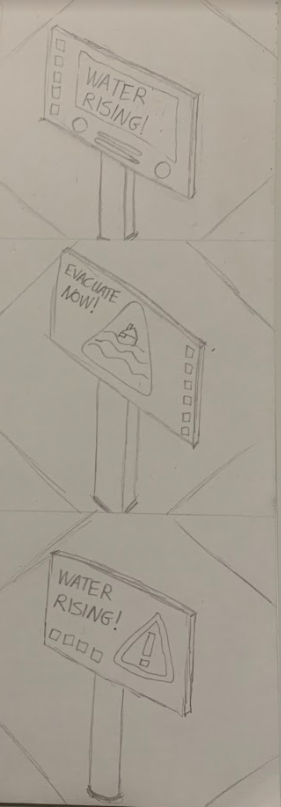 WATER
RISING!
EVACUATE
NOW!
WATER
RISING!